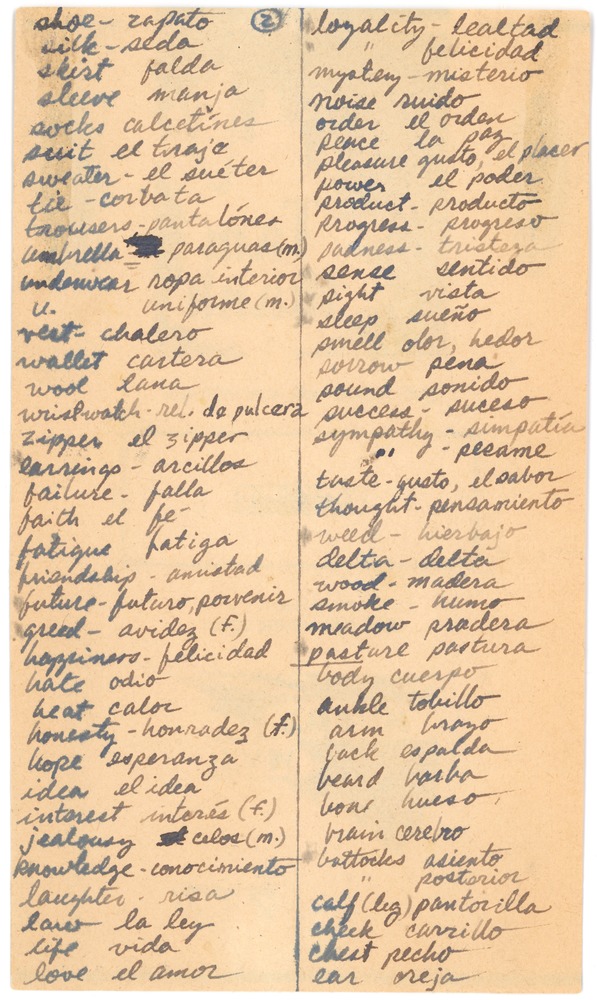 ②
shoe - zapato
silk - seda
skirt falda
sleeve manja
socks calcetínes
suit el traje
sweater - el suéter
tie - corbata
trousers - pantalónes
umbrella paraguas (m.)
underwear ropa interior
u. uniforme (m.)
vest - chalero
wallet cartera
wool lana
wristwatch - rel. de pulcera
zipper el zipper
earrings - arcillos
failure - falla
faith el fé
fatigue fatiga
friendship - amistad
future - futuro, porvenir
greed - avidez (f.)
happiness - felicidad
hate odio
heat calor
honesty - honradez (f.)
hope esperanza
idea el idea
interest interés (f.)
jealousy celos (m.)
knowledge - conocimiento
laughter - risa
law la ley
life vida
love el amor
loyality - lealtad
" felicidad
mystery - misterio
noise ruido
order el orden
peace la paz
pleasure gusto, el placer
power el poder
product - producto
progress - progreso
sadness - tristeza
sense sentido
sight vista
sleep sueño
smell olor, hedor
sorrow pena
sound sonido
success - suceso
sympathy - simpatía
" - pesame
taste - gusto, el sabor
thought - pensamiento
weed - hierbajo
delta - delta
wood - madera
smoke - humo
meadow pradera
pasture pastura
body cuerpo
ankle tobillo
arm brazo
back espalda
beard barba
bone hueso
brain cerebro
buttocks asiento
" posterior
calf (leg) pantorilla
cheek carrillo
chest pecho
ear oreja